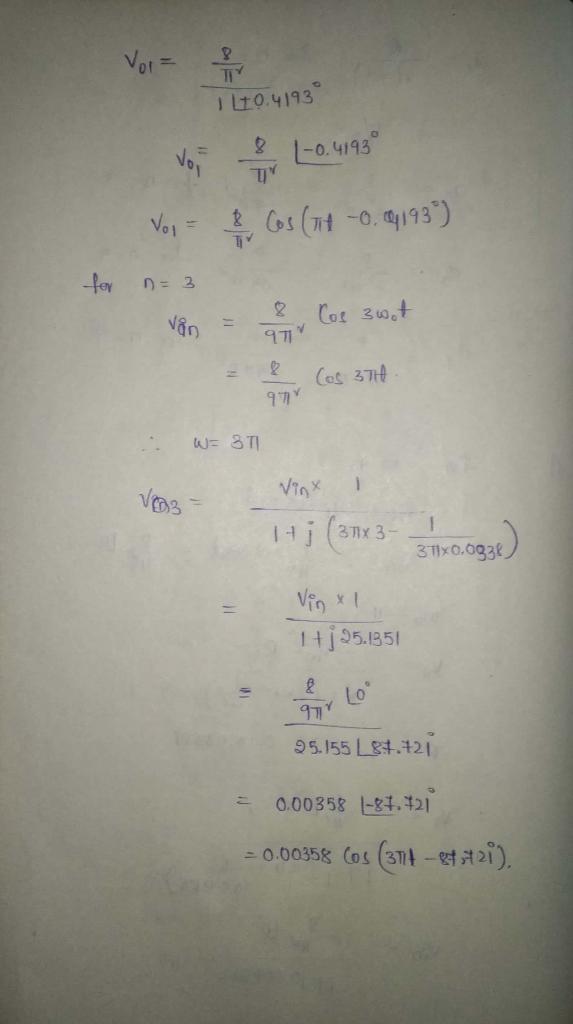 V01 = 8/π² / 1∠+0.4193°
V01 = 8/π² ∠-0.4193°
V01 = 8/π² Cos (πt -0.4193°)
for n = 3
vin = 8/9π² Cos 3ω0t
= 8/9π² Cos 3πt.
∴ W = 3π
V03 = Vin x 1 / 1+j (3π x 3 - 1/3πx0.0938)
= Vin x 1 / 1+j 25.1351
= 8/9π² ∠0° / 25.155 ∠87.721°
= 0.00358 ∠-87.721°
= 0.00358 Cos (3πt - 87.721°).